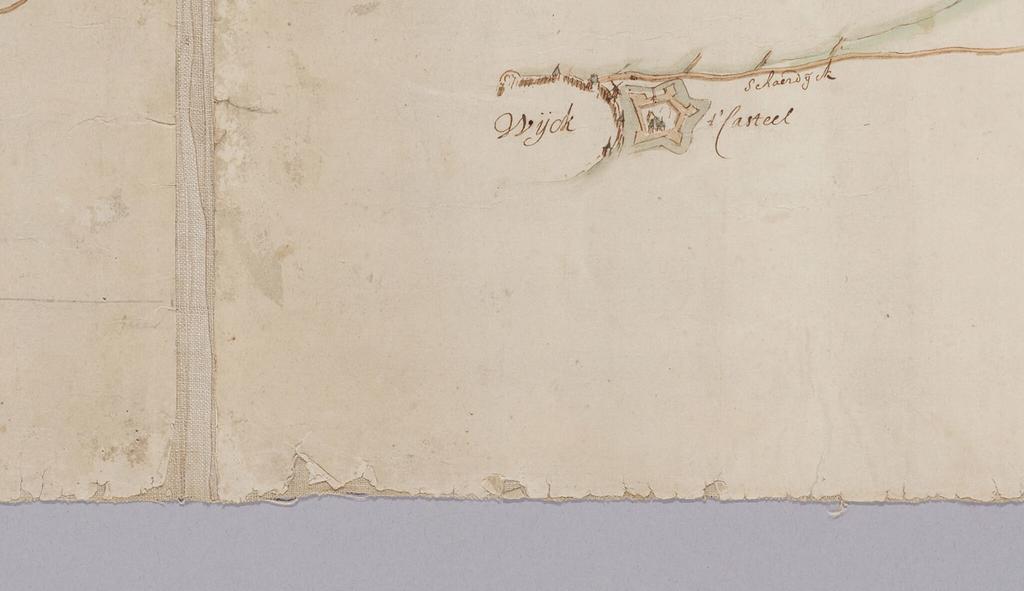 Schaerdyck
Wijck
t'Casteel